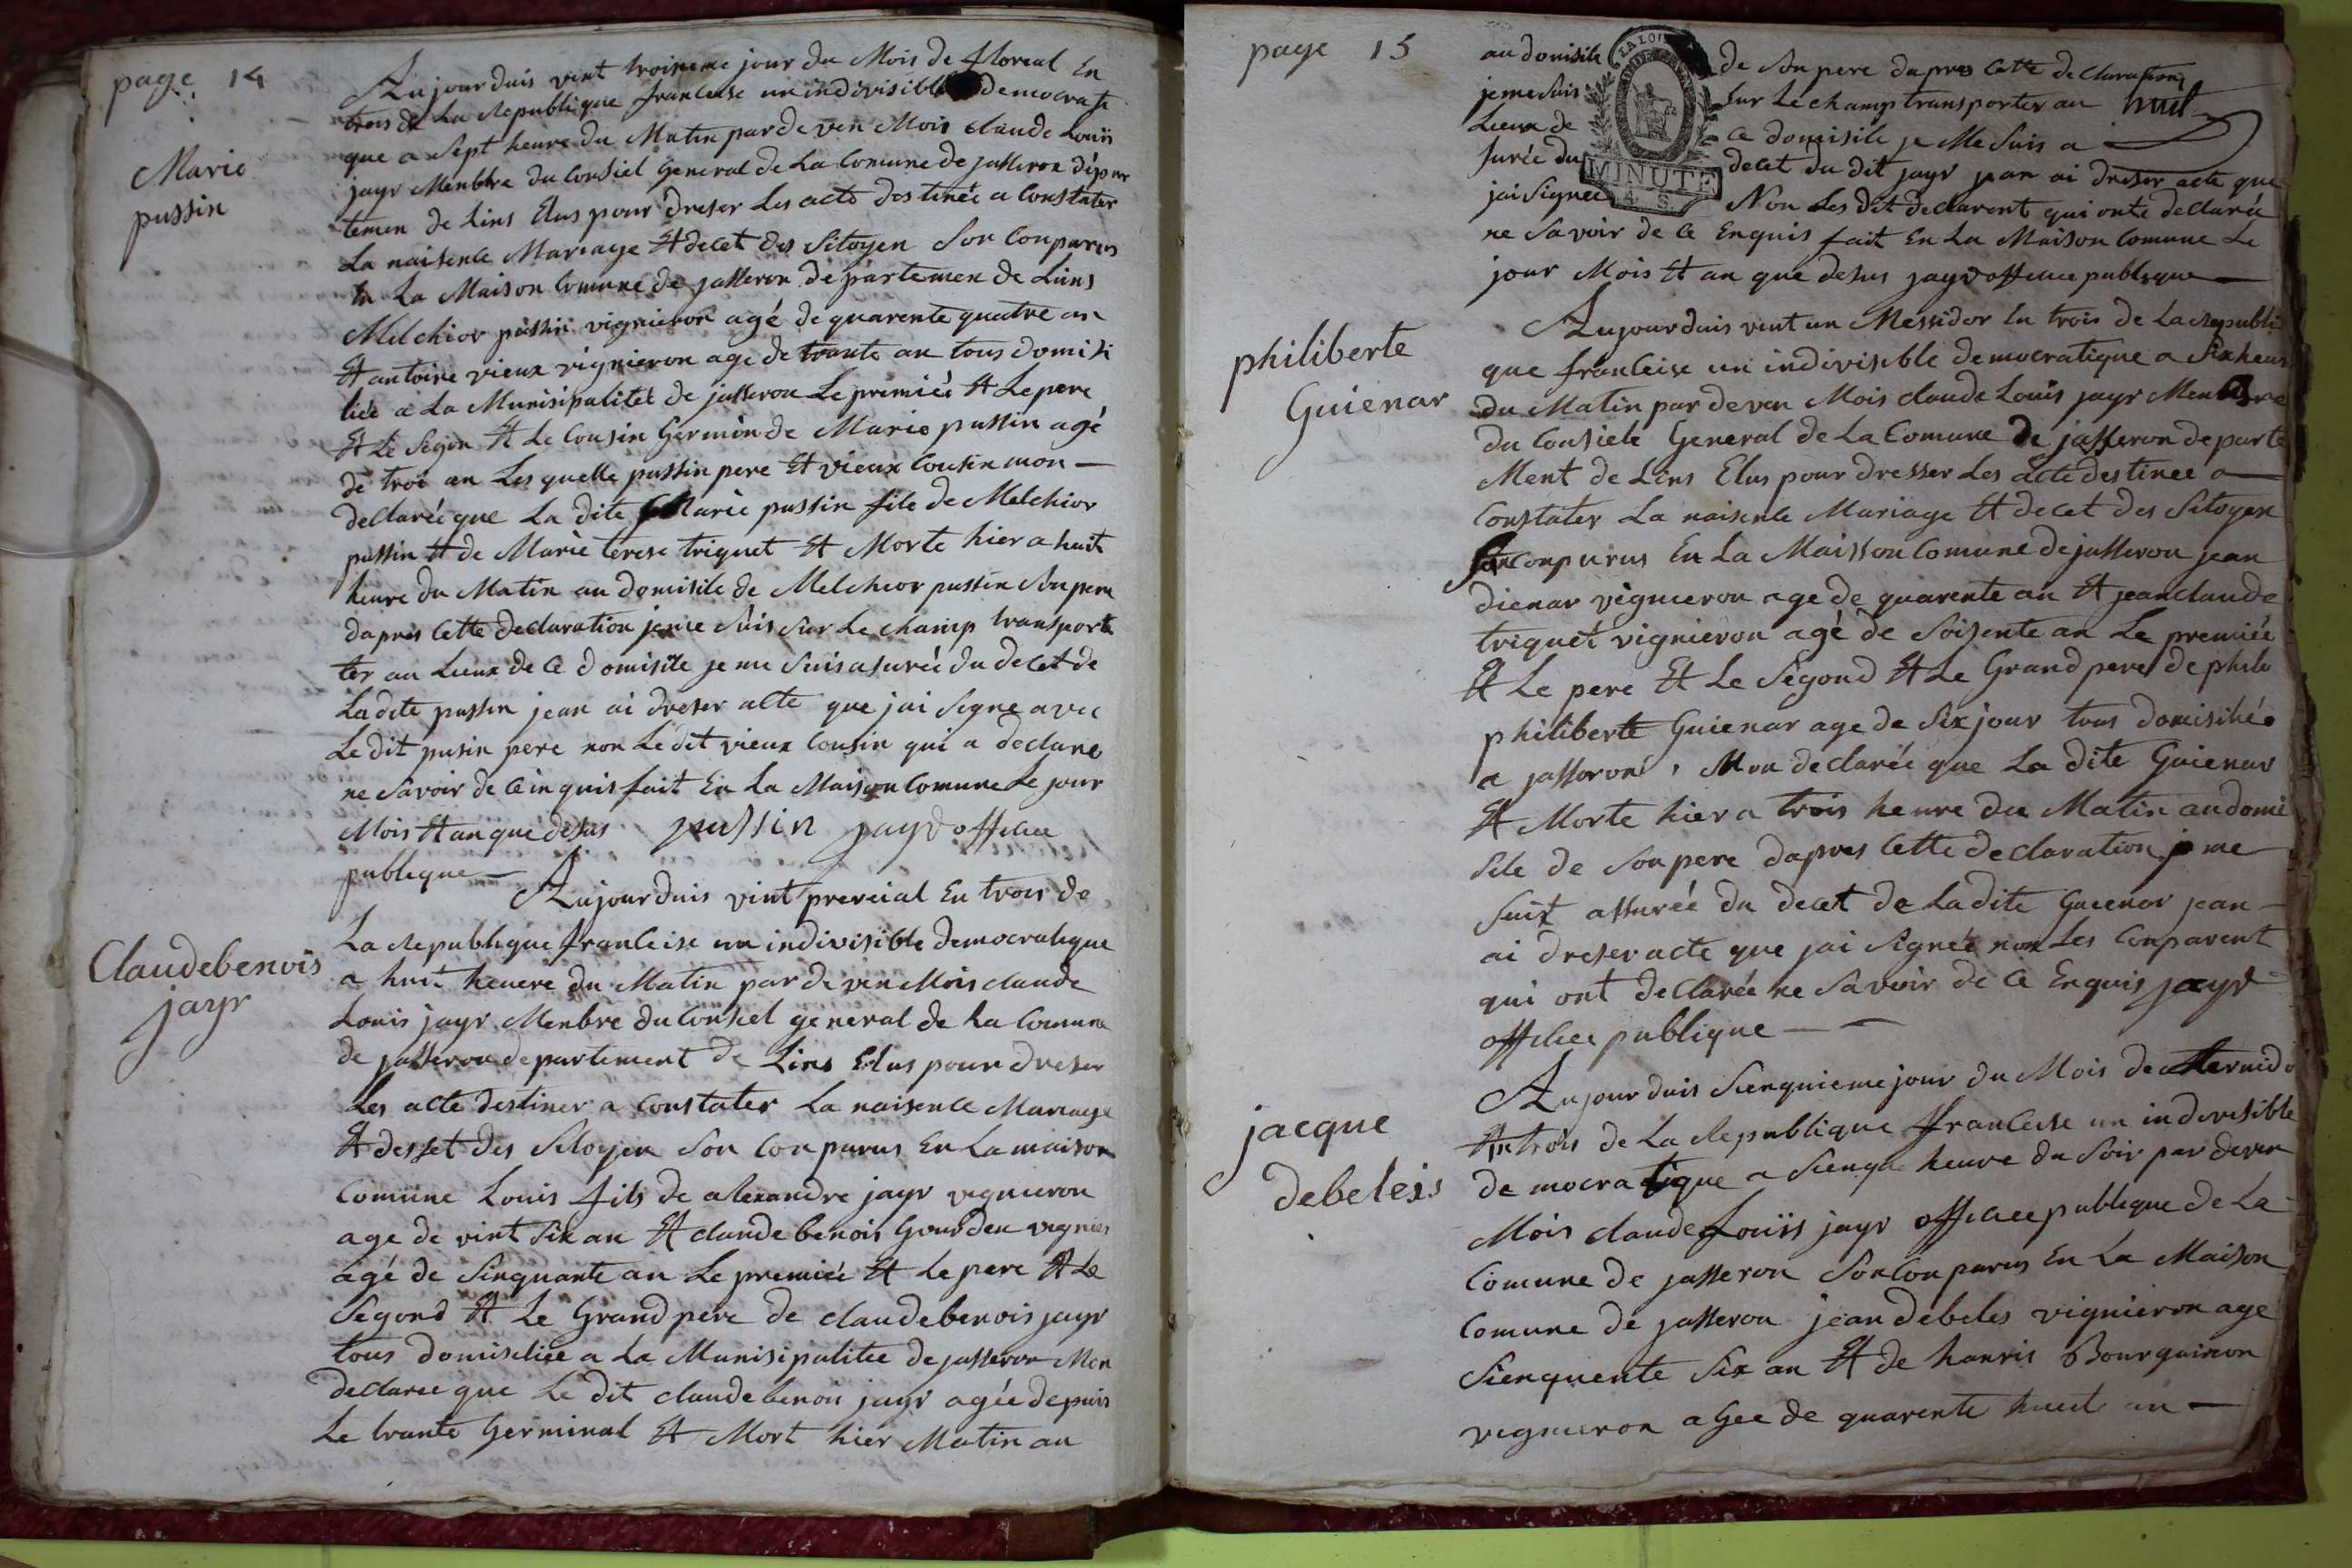 page 14
Marie
pussin
Aujourduis vint troisieme jour du Mois de floreal En
trois de La Republique francaise un indivisible democrati
que a Sept heure du Matin par deven Mois claude Louis
jayr Menbre du Consiel General de La Comune de jasseron dépar
temen de Lins Elus pour dreser Les acte destinée a Constater
La naisence Mariage Et decet des Sitoyen Son Conparus
En La Maison Comune de jasseron departemen de Lins
Melchior pussin vignieron agé de quarente quatre an
Et antoine vieux vignieron age de trante an tous domisi
liée a La Munisipalité de jasseron Le premiée Et Le pere
Et Le Segon Et Le Cousin Germin de Marie pussin agé
de troi an Les quelle pussin pere Et vieux Cousin mon
declarée que La dite Marie pussin file de Melchior
pussin Et de Marie terese triquet Et Morte hier a huit
heure du Matin au domisile de Melchior pussin Son pere
dapres Cette declaration jeme Suis Sur Le champ transport
ter au Lieux de Ce domisile je me Suis asurée du decet de
Ladite pussin jean ai dreser acte que jai Signe avec
Le dit pusin pere non Le dit vieux Cousin qui a declare
ne Savoir de Ce inquis fait En La Maison Comune Le jour
Mois Et an que desus pussin jayr officee
publique
Claudebenois
jayr
Aujourduis vint prereial En trois de
La Republique francaise un indivisible democratique
a huit heuere du Matin par de ven Mois claude
Louis jayr Menbre du Consiel general de La Comune
de jasseron departement de Lins Elus pour dreser
Les acte destiner a Constater La naisence Mariage
Et desset des Sitoyen Son Conparus En La maison
Comune Louis fils de alexandre jayr vignieron
age de vint Six an Et claude benois Gourden vignier
agé de Sinquante an Le premiée Et Le pere Et Le
Segond Et Le Grand pere de claudebenois jayr
tous domisiliée a La Munisipalitee de jasseron Mon
declaree que Le dit claudebenoi jayr agée depuis
Le trante Germinal Et Mort hier Matin au
page 15
au domisile de Son pere dapres Cette declaration
jeme Suis Sur Le champ transporter au nul
Lieux de Ce domisile je Me Suis a
Surée du decet du dit jayr jean ai dreser acte que
jai Signee Non Les dit declarent qui onte declarée
ne Savoir de Ce Enquis fait En La Maison Comune Le
jour Mois Et an que desus jayr officee publique
LA LOI
MINUTE
4 S
philiberte
Guienar
Aujourduis vint un Messidor En trois de La Republi
que francaise un indivisible democratique a Six heur
du Matin par deven Mois claude Louis jayr Menbre
du Consiele General de La Comune de jasseron departe
Ment de Lins Elus pour dresser Les acte destinee a
Constater La naisence Mariage Et decet des Sitoyen
Son Conparus En La Maisson Comune de jasseron jean
dienar vignieron age de quarente an Et jean claude
triquet vignieron agé de Soisente an Le premiée
Et Le pere Et Le Segond Et Le Grand pere de phile
philiberte Guienar age de Six jour tous domisiliée
a jasseron, Mon declarée que La dite Guienar
Et Morte hier a trois heure du Matin au domi
sile de Son pere dapres Cette declaration je me
Suit assurée du decet de La dite Guienar jean
ai dreser acte que jai Signée non Les Conparent
qui ont declarée ne Savoir de Ce Enquis jayr
officee publique
jacque
debeleis
Aujourduis Sienquieme jour du Mois de ternido
An trois de La Republique francaise un indivisible
democratique a Sienque heure du Soir par deven
Mois claude Louis jayr officee publique de La
Comune de jasseron Son Conparus En La Maison
Comune de jasseron jean debeles vignieron age
Sienquente Six an Et de hanris Bourguinon
vignieron aGee de quarente huit an